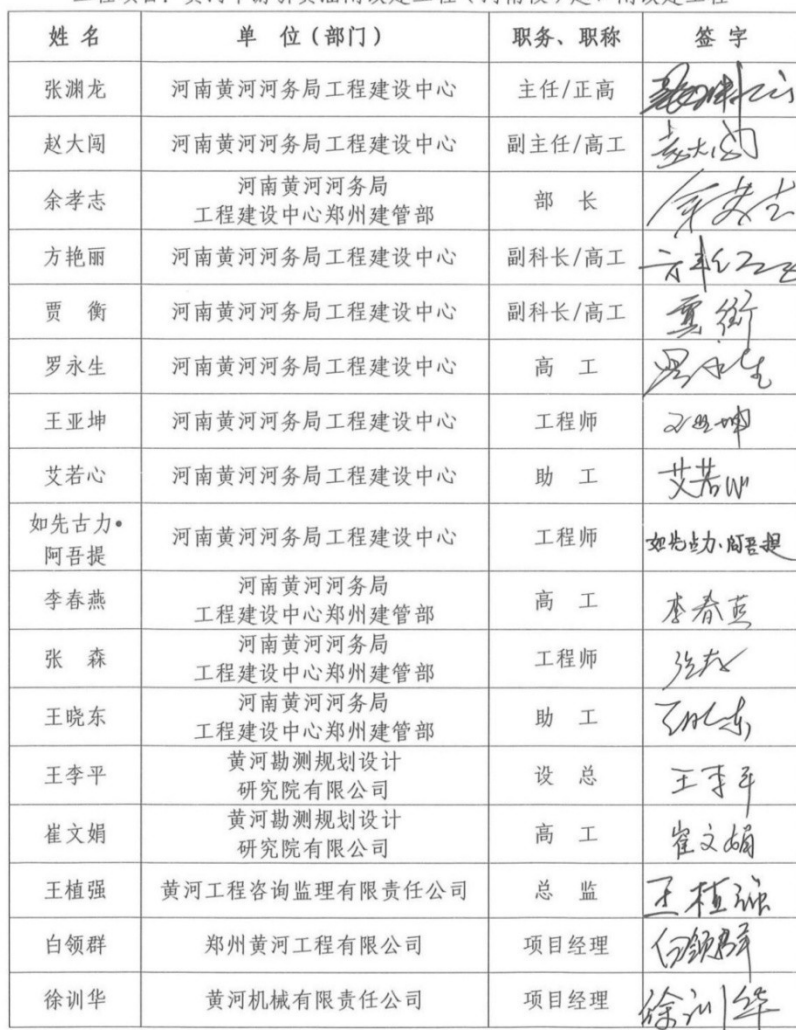 姓 名 单 位（部门） 职务、职称 签 字
张渊龙 河南黄河河务局工程建设中心 主任/正高
赵大闯 河南黄河河务局工程建设中心 副主任/高工
河南黄河河务局
余孝志 工程建设中心郑州建管部 部 长
方艳丽 河南黄河河务局工程建设中心 副科长/高工
贾 衡 河南黄河河务局工程建设中心 副科长/高工
罗永生 河南黄河河务局工程建设中心 高 工 罗永生
王亚坤 河南黄河河务局工程建设中心 工程师 王亚坤
艾若心 河南黄河河务局工程建设中心 助 工 艾若心
如先古力•
阿吾提 河南黄河河务局工程建设中心 工程师 如先古力·阿吾提
河南黄河河务局
李春燕 工程建设中心郑州建管部 高 工 李春燕
河南黄河河务局
张 森 工程建设中心郑州建管部 工程师
河南黄河河务局
王晓东 工程建设中心郑州建管部 助 工
黄河勘测规划设计
王李平 研究院有限公司 设 总 王李平
黄河勘测规划设计
崔文娟 研究院有限公司 高 工 崔文娟
王植强 黄河工程咨询监理有限责任公司 总 监 王植强
白领群 郑州黄河工程有限公司 项目经理 白领群
徐训华 黄河机械有限责任公司 项目经理 徐训华